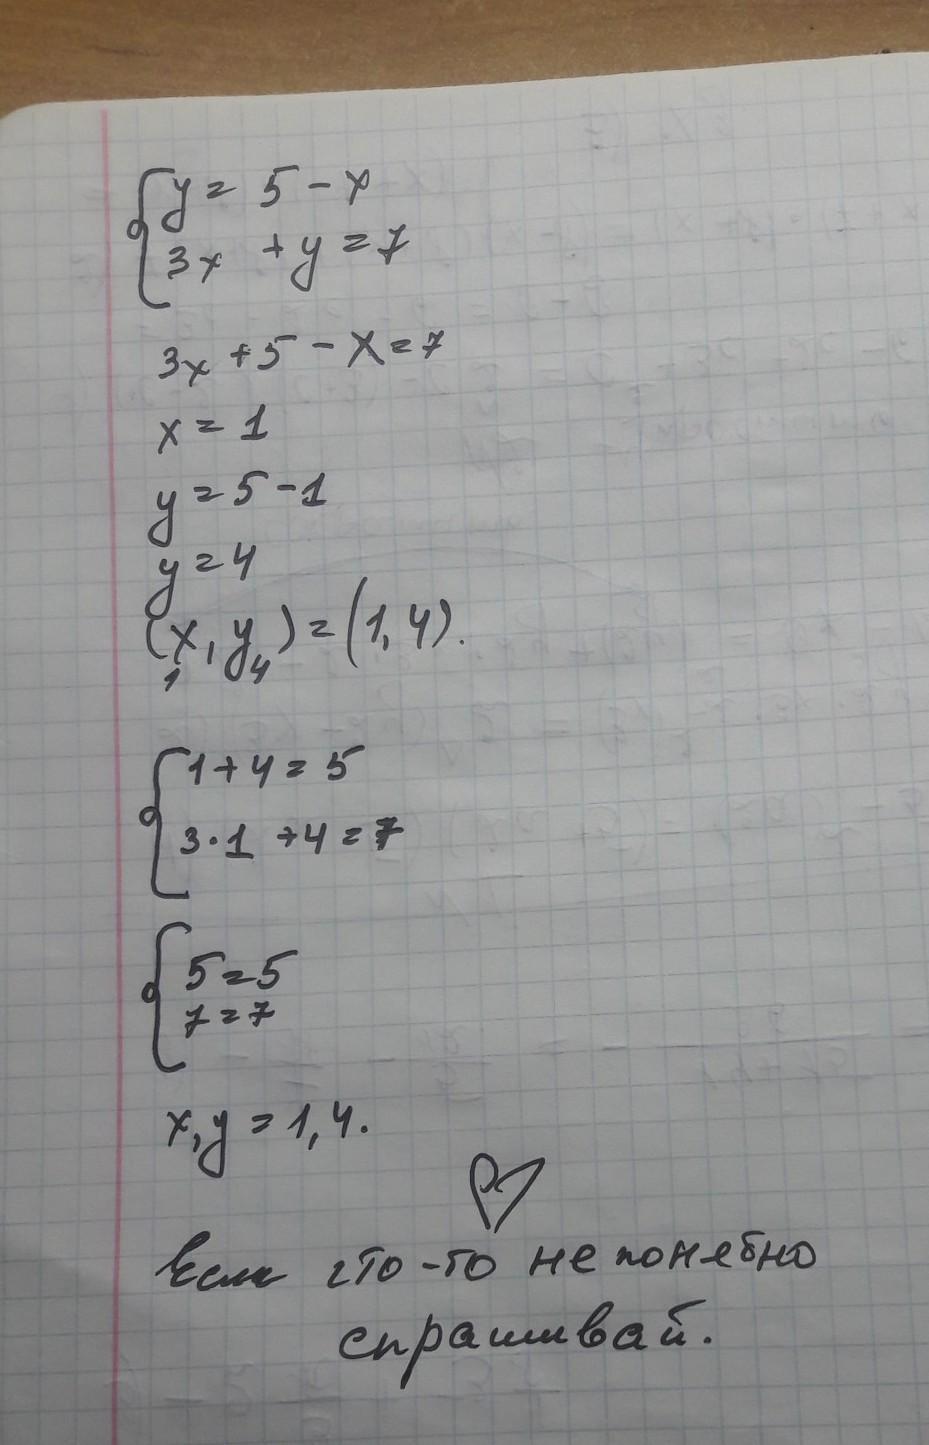 {y = 5 - x
3x + y = 7
3x + 5 - x = 7
x = 1
y = 5 - 1
y = 4
(x, y) = (1, 4).
1 4
{1 + 4 = 5
3 · 1 + 4 = 7
{5 = 5
7 = 7
x, y = 1, 4.
Если что-то не понятно
спрашивай.